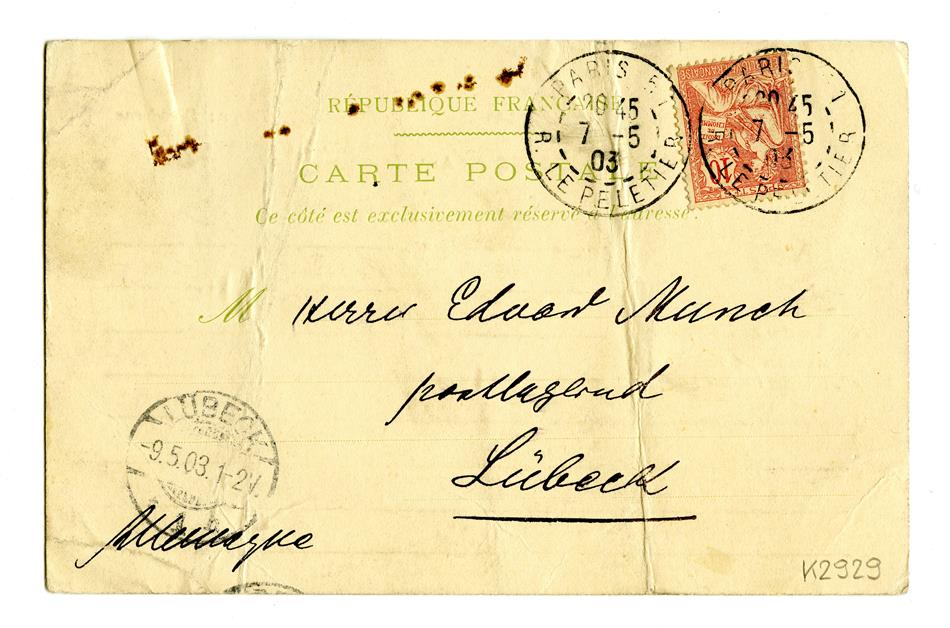 RÉPUBLIQUE FRANÇAISE
CARTE POSTALE
Ce côté est exclusivement réservé à l'adresse.
PARIS 51
20 45
7 -5
03
R. LE PELETIER
PARIS 51
20 45
7 -5
03
R. LE PELETIER
10
M Herrn Edvard Munch
postlagernd
Lübeck
LÜBECK
-9.5.03.1-2V.
Allemagne
K2929